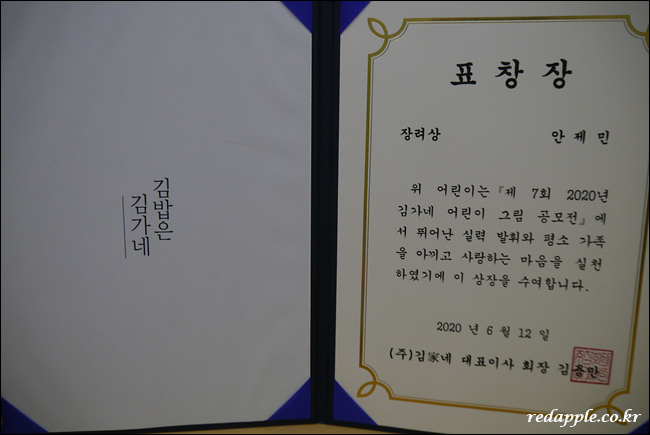 김밥은
김가네
표창장
장려상 안제민
위 어린이는『제 7회 2020년
김가네 어린이 그림 공모전』에
서 뛰어난 실력 발휘와 평소 가족
을 아끼고 사랑하는 마음을 실천
하였기에 이 상장을 수여합니다.
2020 년 6 월 12 일
(주)김家네 대표이사 회장 김용만
redapple.co.kr